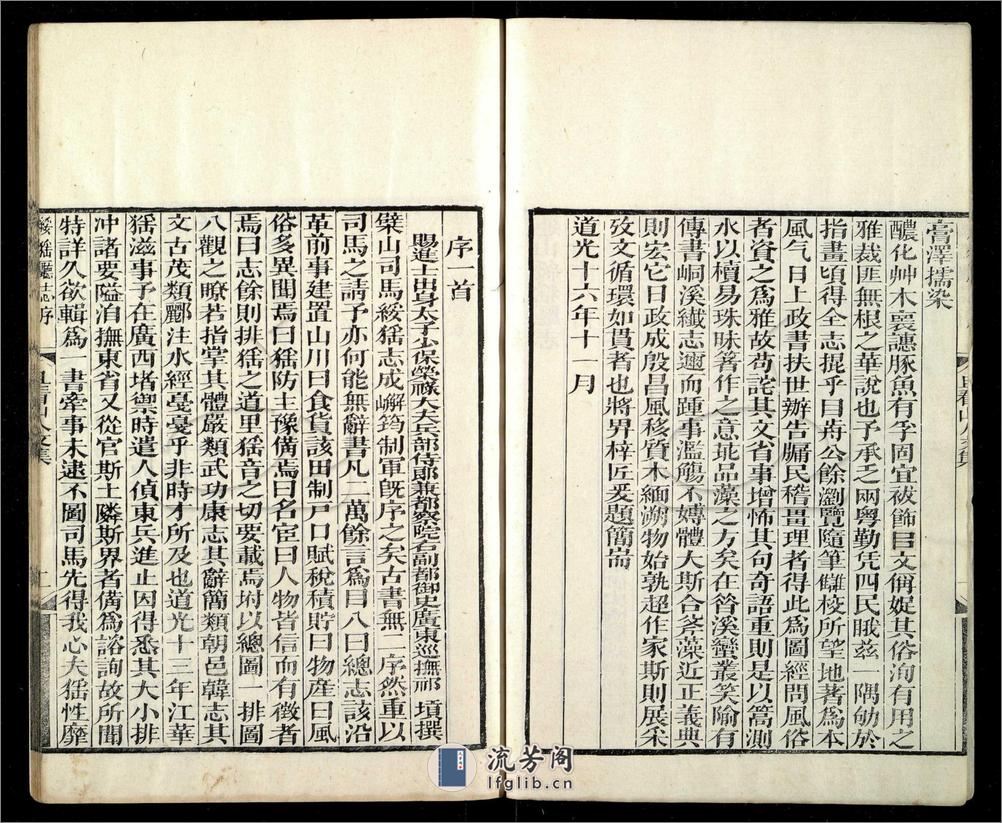 膏澤擩染
醲化艸木裹譓豚魚有孚固宜祓飾㠯文偁娖其俗洵有用之
雅裁匪無根之華說也予承乏兩粵勤凭四民睋茲一隅劬於
指畫頃得全志掍乎㠯公餘瀏覽隨筆讎棱所望地著為本
風气日上政書扶世辦告牖民稽畺理者得此爲圖經問風俗
者資之爲雅故苟詫其文省事增怖其句奇語重則是以篙測
水以櫝易珠昧箸作之意坻品藻之方矣在昝溪蠻叢笑隃有
傳書峒溪纖志遡而踵事濫觴不嫥體大斯合釜藻近正義典
則宏它日政成殷昌風移質木緬溯物始孰超作家斯則展采
攷文循環如貫者也將畀梓匠爰題簡耑
道光十六年十一月
序一首
賜進士出身太子少保榮祿大夫兵部侍郎兼都察院右副都御史廣東巡撫祁 㙺撰
檗山司馬綏猺志成嶰筠制軍旣序之矣古書無二序然重以
司馬之請予亦何能無辭書凡二萬餘言爲目八曰總志該沿
革前事建置山川曰食貨該田制戸口賦稅積貯曰物產曰風
俗多異聞焉曰猺防主豫備焉曰名宦曰人物皆信而有徵者
焉曰志餘則排猺之道里猺音之切要載焉坿以總圖一排圖
八觀之瞭若指掌其體嚴類武功康志其辭簡類朝邑韓志其
文古茂類酈注水經戞戞乎非時才所及也道光十三年江華
猺滋事予在廣西堵禦時遣人偵東兵進止因得悉其大小排
沖諸要隘洎撫東省又從官斯土隣斯界者備爲諮詢故所聞
特詳久欲輯爲一書牽事未逮不圖司馬先得我心夫猺性靡
綏猺廳志序
流芳阁
lfglib.cn